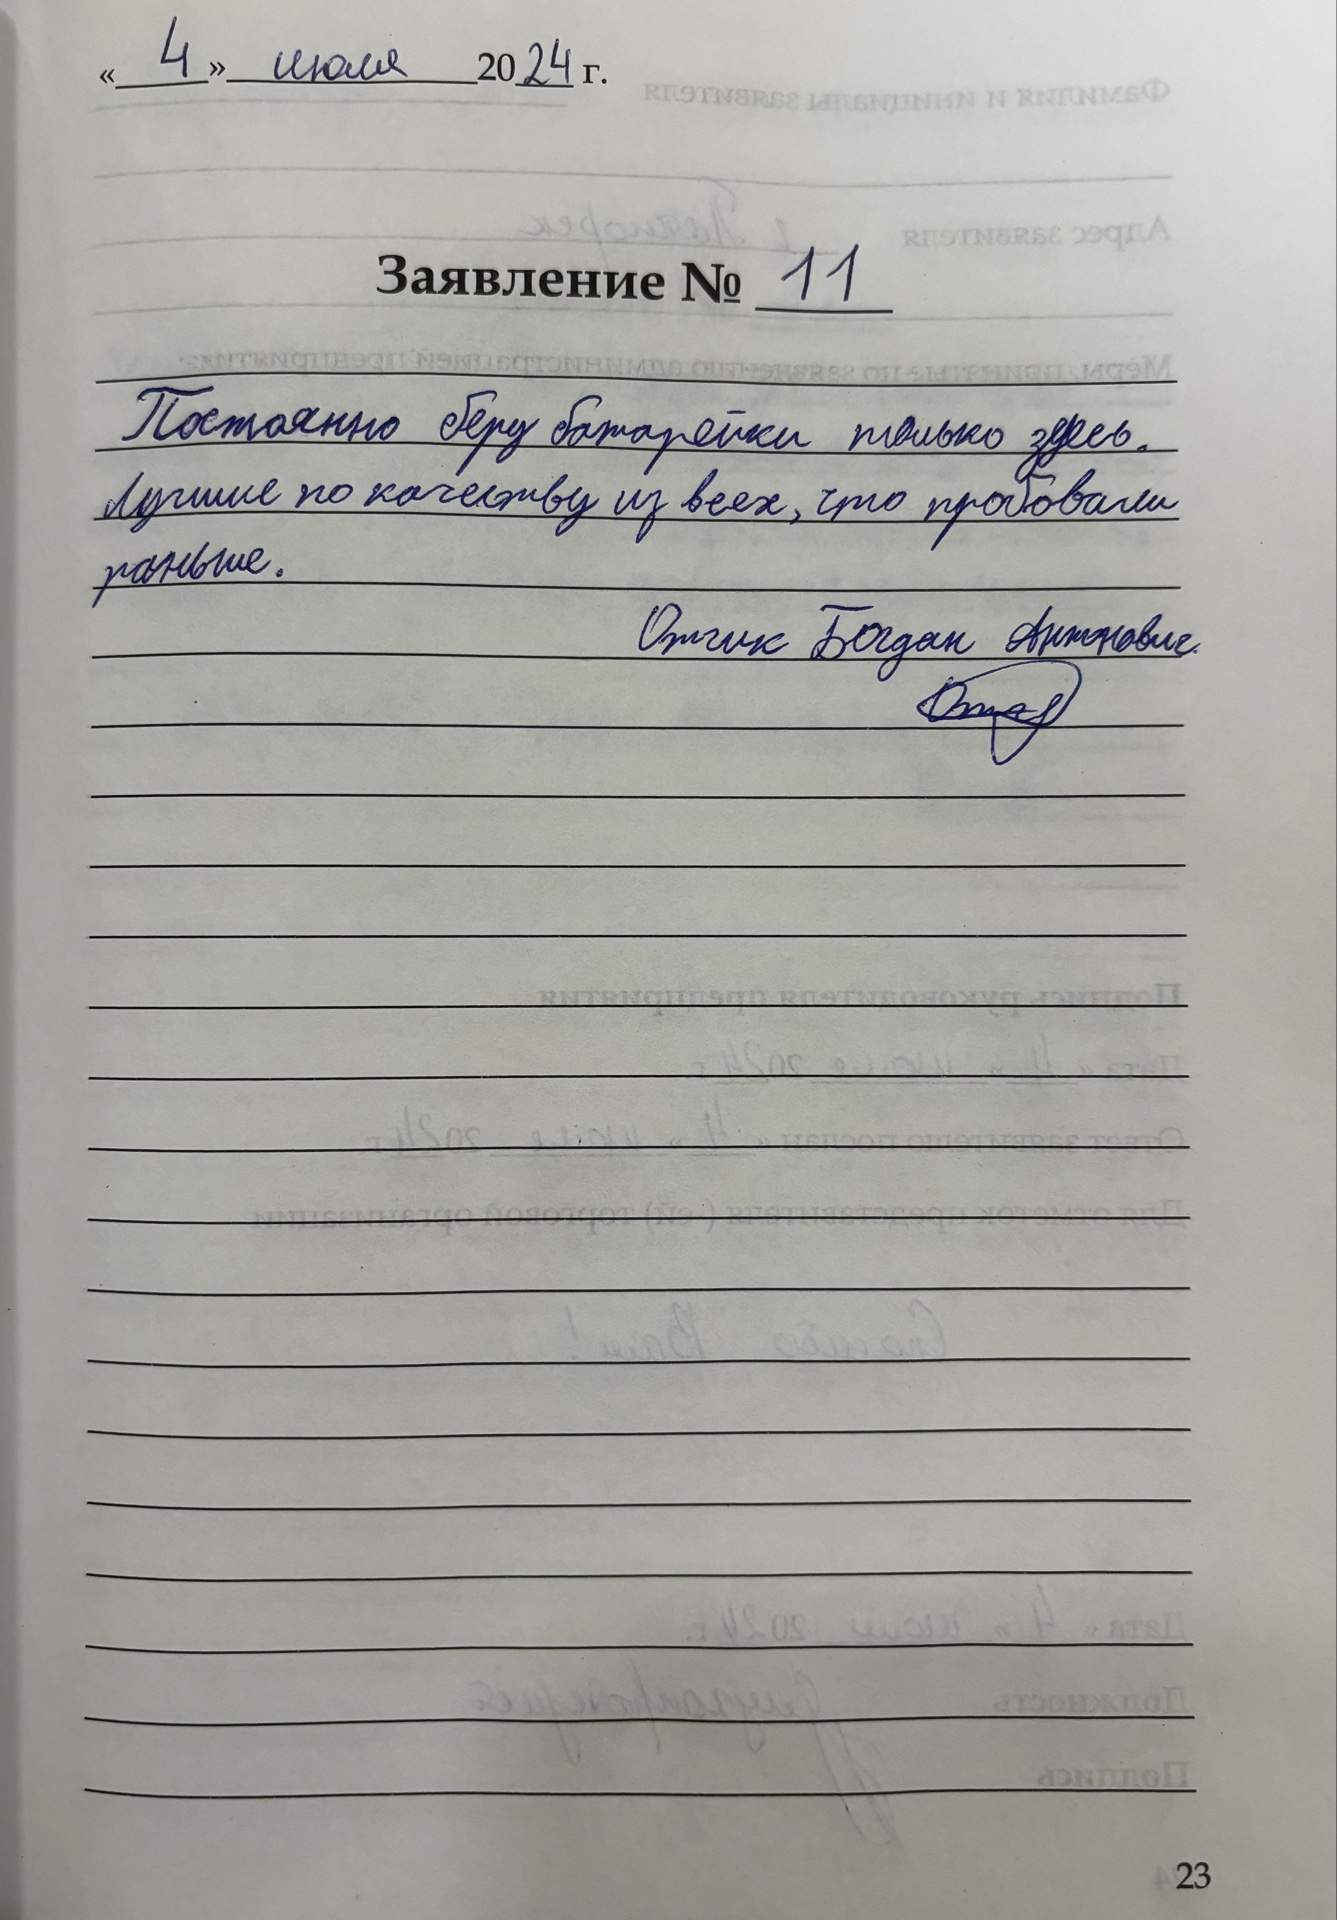 « 4 » июля 2024 г.
Заявление № 11
Постоянно беру батарейки только здесь.
Лучшие по качеству из всех, что пробовали
раньше.
Богдан Антонович
23